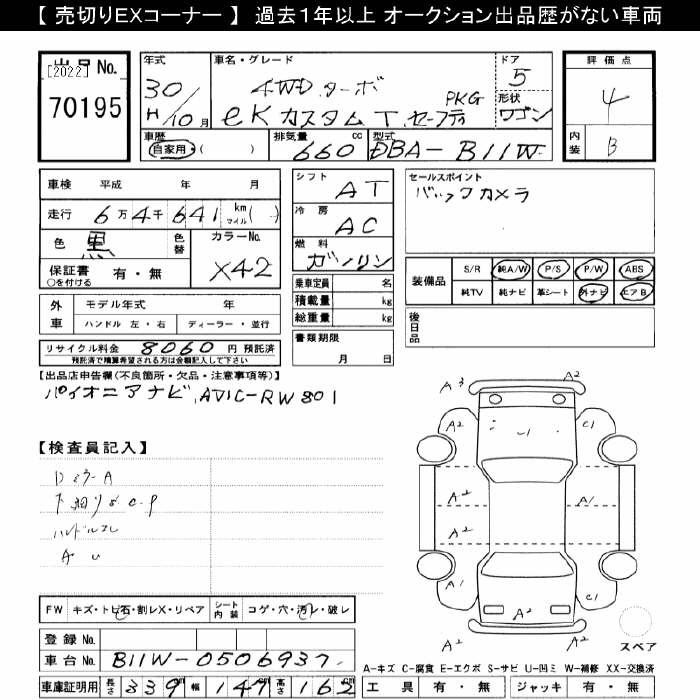 【 売切りEXコーナー 】 過去１年以上 オークション出品歴がない車両
出品No. [2022]
70195
年式 車名・グレード ドア 評価点
30/ H/10月
4WD ターボ 5
eK カスタム T セーフティ PKG
形状 ワゴン
4
内装 B
車歴 自家用・( ) 排気量 660 cc 型式 DBA-B11W
車検 平成 年 月
走行 6万4千641 km マイル( )
色 黒 色替 カラーNo. X42
保証書 ○を付ける 有・無
シフト AT
冷房 AC
燃料 ガソリン
乗車定員 名
積載量 kg
総重量 kg
セールスポイント
バックカメラ
装備品 S/R 純A/W P/S P/W ABS
純TV 純ナビ 革シート 外ナビ エアB
外車 モデル年式 年
ハンドル 左・右 ディーラー・並行
リサイクル料金 8060 円 預託済
預託済で積算希望される方は金額記入して下さい
書類期限 月 日
後日品
【出品店申告欄(不良箇所・欠品・注意事項等)】
パイオニアナビ,AVIC-RW801
【検査員記入】
Dミラー A
下廻りS C・P
ハンドルスレ
A U
A3 A2
A2 -1 C1
A2 A1
A2
A1 C1
A2
A2 A2
スペア
FW キズ・トビ石・割レX・リペア シート内装 コゲ・穴・汚レ・破レ
登録No.
車台No. B11W-0506937
車庫証明用 長さ 339 cm 幅 147 cm 高さ 162 cm
A-キズ C-腐食 E-エクボ S-サビ U-凹ミ W-補修 XX-交換済
工具 有・無 ジャッキ 有・無